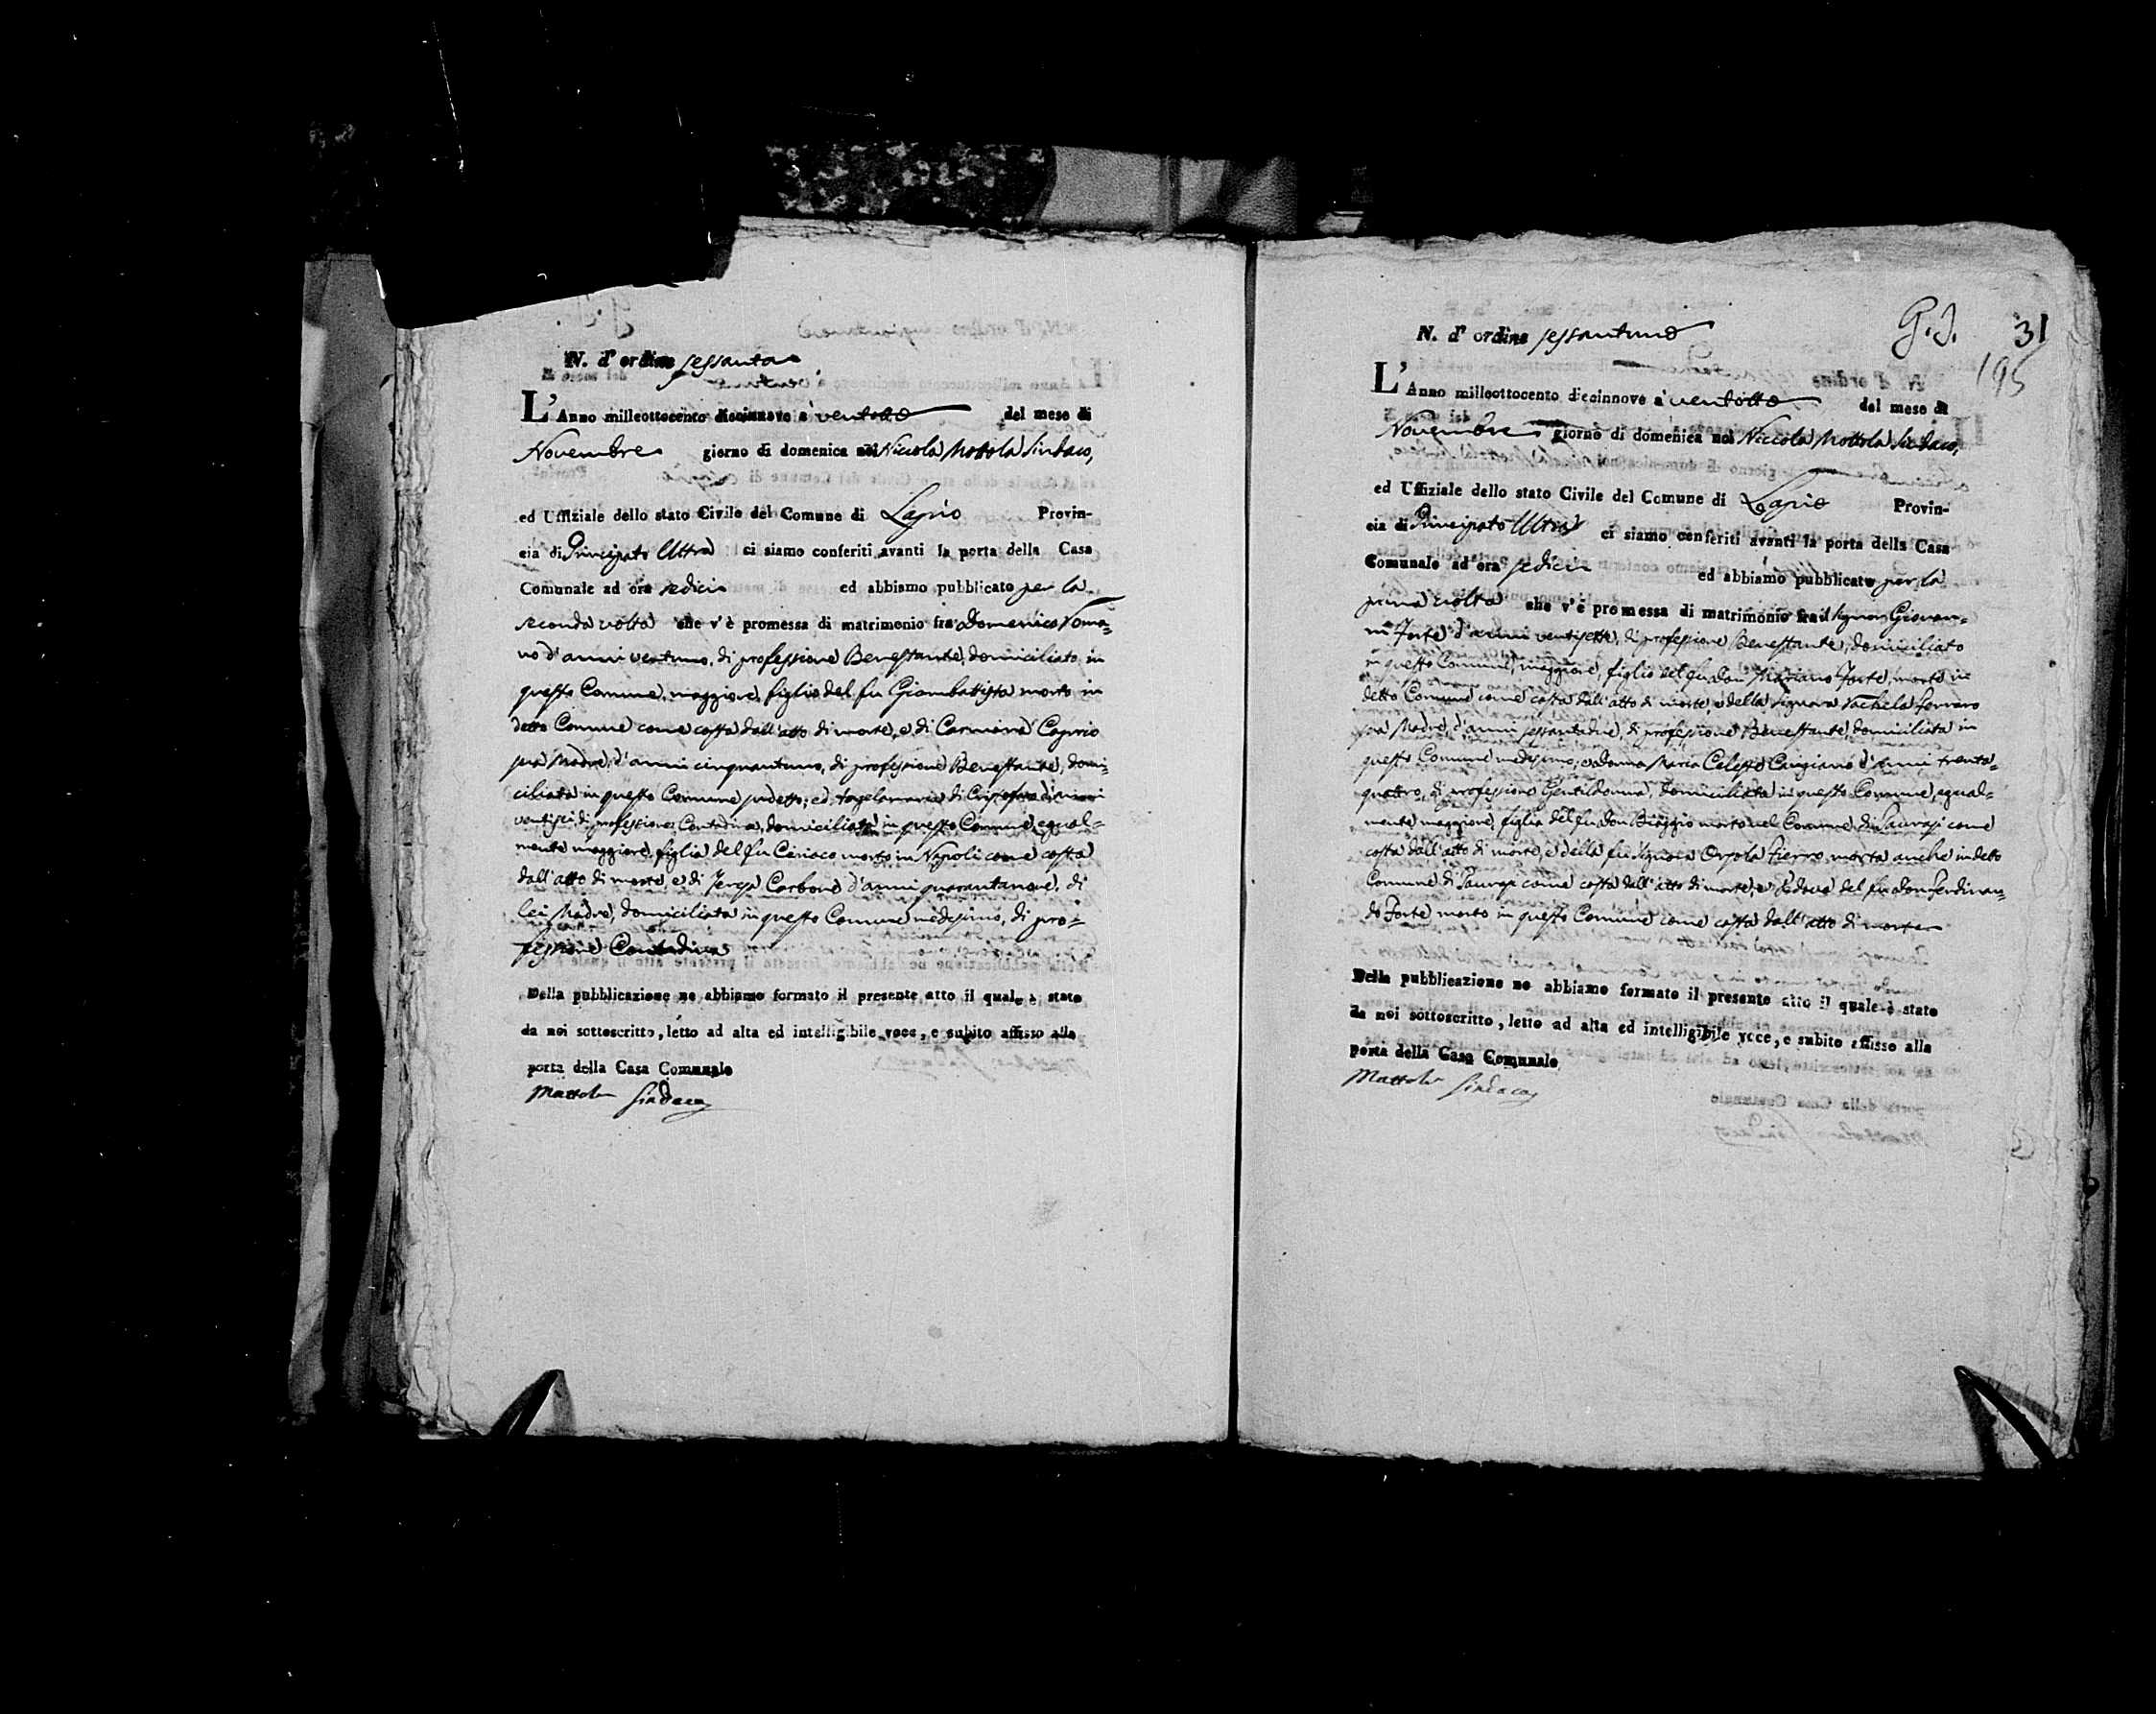 N. d' ordine sessanta
L'Anno milleottocento diecinnove a' ventotto del mese di
Novembre giorno di domenica noi Niccola Mottola Sindaco,
ed Uffiziale dello stato Civile del Comune di Lapio Provin-
cia di Principato Ultra ci siamo conferiti avanti la porta della Casa
Comunale ad ora sedici ed abbiamo pubblicato per la
seconda volta che v'è promessa di matrimonio fra Domenico Roma-
no d'anni ventuno, di professione Benestante, domiciliato in
questo Comune, maggiore, figlio del fu Giambattista morto in
detto Comune come costa dall'atto di morte, e di Carmina Caprio
sua Madre, d'anni cinquantuno, di professione Benestante, domi-
ciliata in questo Comune sudetto; ed Angelamaria di d'anni
ventisei di professione Contadina, domiciliata in questo Comune, egual-
mente maggiore, figlia del fu Ciriaco morto in Napoli come costa
dall'atto di morte, e di Teresa Carbone d'anni quarantanove, di
lei Madre, domiciliata in questo Comune medesimo, di pro-
fessione Contadina
Della pubblicazione ne abbiamo formato il presente atto il quale è stato
da noi sottoscritto, letto ad alta ed intelligibile voce, e subito affisso alla
porta della Casa Comunale
Mottola Sindaco
31
195
N. d' ordine sessantuno
L'Anno milleottocento diecinnove a' ventotto del mese di
Novembre giorno di domenica noi Niccola Mottola Sindaco,
ed Uffiziale dello stato Civile del Comune di Lapio Provin-
cia di Principato Ultra ci siamo conferiti avanti la porta della Casa
Comunale ad ora sedici ed abbiamo pubblicato per la
prima volta che v'è promessa di matrimonio fra il Signor Giovan-
ni Forte d'anni ventisette, di professione Benestante, domiciliato
in questo Comune, maggiore, figlio del fu Don Mariano Forte, morto in
detto Comune come costa dall'atto di morte, e della Signora Rachela Ferraro
sua Madre, d'anni sessantadue, di professione Benestante, domiciliata in
questo Comune medesimo; e Donna Maria Celeste Cangiano d'anni trenta-
quattro, di professione Gentildonna, domiciliata in questo Comune, egual-
mente maggiore, figlia del fu Don Biaggio morto nel Comune di Taurasi come
costa dall'atto di morte, e della fu Signora Orsola Fierro morta anche in detto
Comune di Taurasi come costa dall'atto di morte, e Vedova del fu Don Ferdinan-
do Forte morto in questo Comune come costa dall'atto di morte
Della pubblicazione ne abbiamo formato il presente atto il quale è stato
da noi sottoscritto, letto ad alta ed intelligibile voce, e subito affisso alla
porta della Casa Comunale
Mottola Sindaco